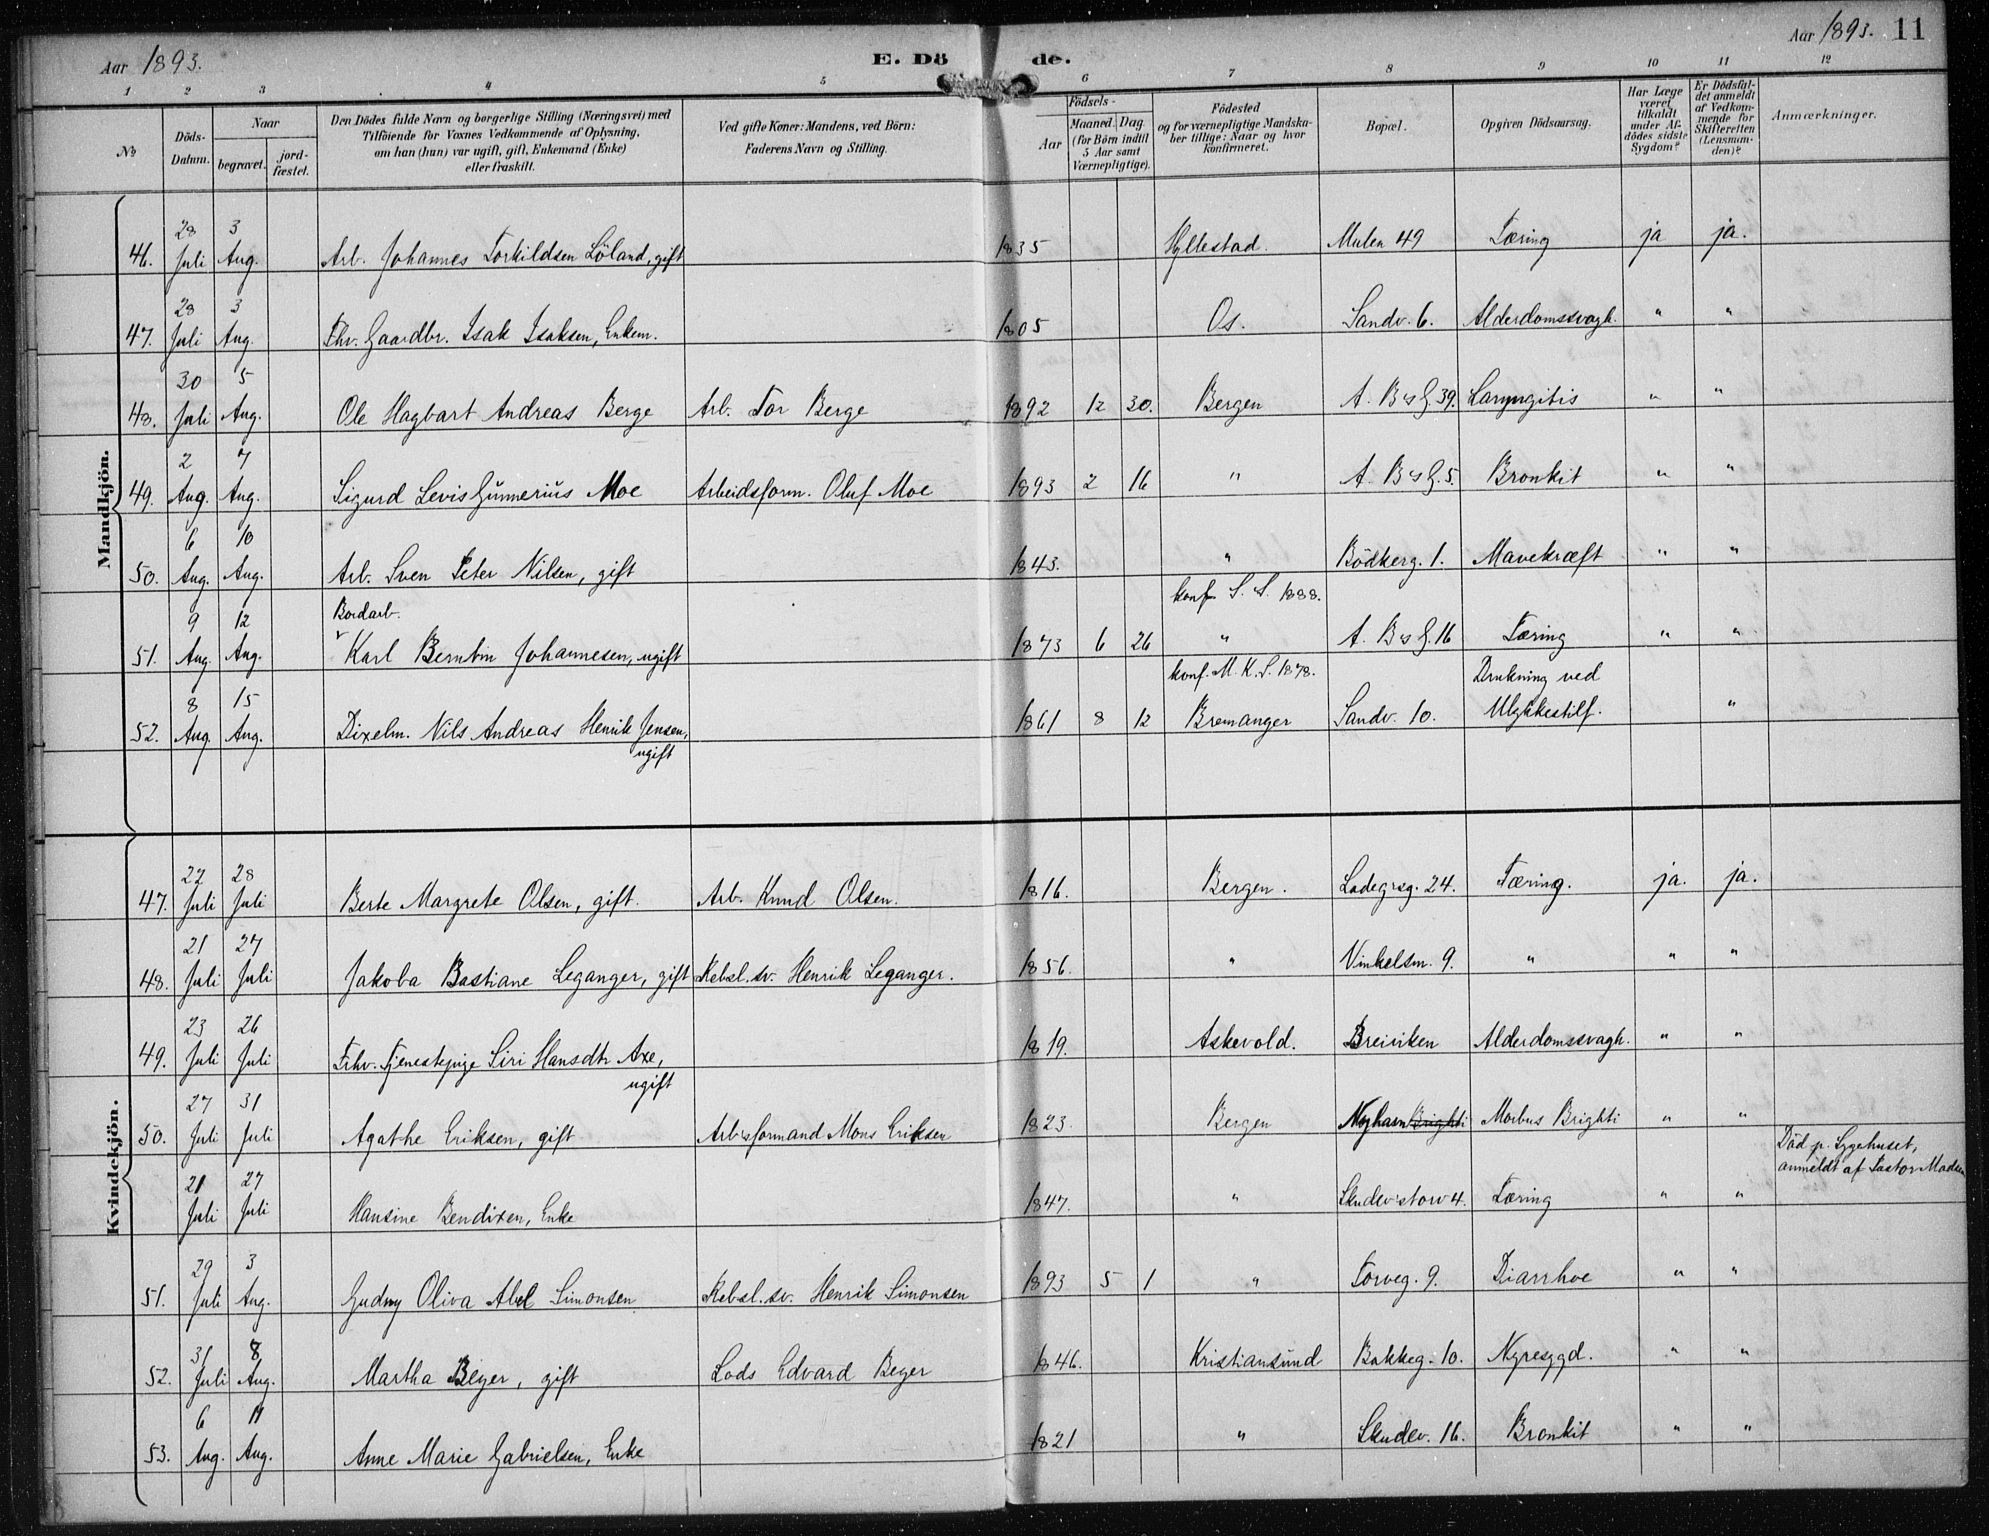 Aar 1893.
E. Döde.
Aar 1893. 11
1 2 3 4 5 6 7 8 9 10 11 12
No
Döds-Datum.
Naar
begravet.
jord-fæstet.
Den Dödes fulde Navn og borgerlige Stilling (Næringsvei) med
Tilföiende for Voxnes Vedkommende af Oplysning,
om han (hun) var ugift, gift, Enkemand (Enke)
eller fraskilt.
Ved gifte Koner: Mandens, ved Börn:
Faderens Navn og Stilling.
Födsels-
Aar
Maaned. Dag.
(for Börn indtil
5 Aar samt
Værnepligtige).
Födested
og for værnepligtige Mandska-
ber tillige: Naar og hvor
konfirmeret.
Bopæl.
Opgiven Dödsaarsag.
Har Læge
været
tilkaldt
under Af-
dödes sidste
Sygdom?
Er Dödsfal-
det anmeldt
af Vedkom-
mende for
Skifteretten
(Lensman-
den)?
Anmærkninger.
Mandkjön.
46. 28 Juli 3 Aug. Arb. Johannes Torkildsen Löland, gift 1835 Hyllestad. Mulen 49 Tæring ja ja.
47. 28 Juli 3 Aug. Fhv. Gaardbr. Isak Isaksen, Enkem. 1805 Os. Sandv. 6. Alderdomssvagh. " "
48. 30 Juli 5 Aug. Ole Hagbart Andreas Berge Arb. Tor Berge 1892 12 30. Bergen A. B's G. 39. Laryngitis " "
49. 2 Aug. 7 Aug. Sigurd Levis Gunnerius Moe Arbeidsform. Oluf Moe 1893 2 16 " A. B's G. 5. Bronkit " "
50. 6 Aug. 10 Aug. Arb. Sven Peter Nilsen, gift 1843. " Bödkerg. 1. Mavekræft " "
51. 9 Aug. 12 Aug. Bordarb. Karl Berntin Johannesen, ugift 1873 6 26 konf. S. S. 1888. " A. B's G. 16 Tæring " "
52. 8 Aug. 15 Aug. Dixelm. Nils Andreas Henrik Jensen, ugift 1861 8 12 konf. M. K. S. 1878. Bremanger Sandv. 10. Drukning ved Ulykkestilf. "
Kvindekjön.
47. 22 Juli 28 Juli Berte Margrete Olsen, gift. Arb. Knud Olsen. 1816. Bergen. Ladegrsg. 24. Tæring. ja. ja.
48. 21 Juli 27 Juli Jakoba Bastiane Leganger, gift Rebsl. sv. Henrik Leganger. 1856. " Vinkelsm. 9. " " "
49. 23 Juli 26 Juli Fhv. Tjenestepige Siri Hansdtr Axe, ugift 1819. Askevold. Breiviken Alderdomssvagh. " "
50. 27 Juli 31 Juli Agathe Eriksen, gift Arb'sformand Mons Eriksen 1823. Bergen Nyhavn Brighti Morbus Brighti " "
21 Juli 27 Juli Hansine Bendixen, Enke 1847. " Skudev'storv 4. Tæring " " Död p. Sygehuset, anmeldt af Pastor Madsen
51. 29 Juli 3 Aug. Gudny Oliva Abel Simonsen Rebsl. sv. Henrik Simonsen 1893 5 1 " Torveg. 9. Diarrhoe " "
52. 31 Juli 8 Aug. Martha Beyer, gift Lods Edvard Beyer 1846. Kristiansund Bakkeg. 10. Nyresygd. " "
53. 6 Aug. 11 Aug. Anne Marie Gabrielsen, Enke 1821 " Skudev. 16. Bronkit " "